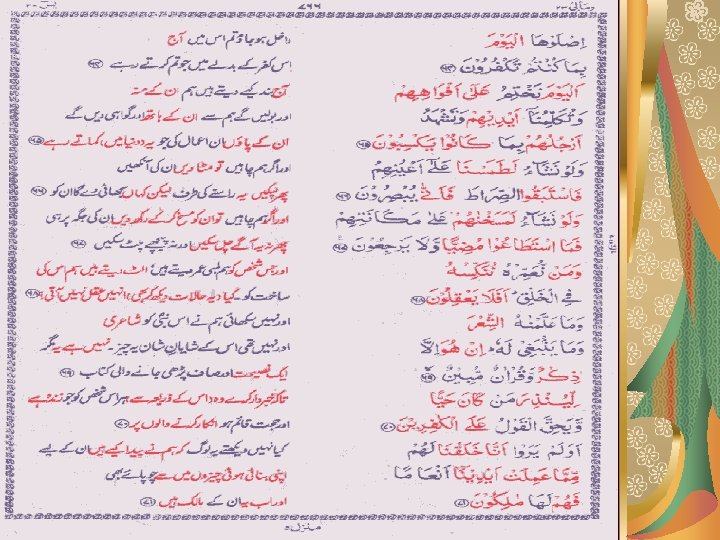 ومالی ۲۳
یٰسٓ ۳۶
اِصْلَوْهَا الْيَوْمَ
بِمَا كُنْتُمْ تَكْفُرُوْنَ ﴿۶۴﴾
اَلْيَوْمَ نَخْتِمُ عَلٰٓى اَفْوَاهِهِمْ
وَتُكَلِّمُنَآ اَيْدِيْهِمْ وَتَشْهَدُ
اَرْجُلُهُمْ بِمَا كَانُوْا يَكْسِبُوْنَ ﴿۶۵﴾
وَلَوْ نَشَآءُ لَطَمَسْنَا عَلٰٓى اَعْيُنِهِمْ
فَاسْتَبَقُوا الصِّرَاطَ فَاَنّٰى يُبْصِرُوْنَ ﴿۶۶﴾
وَلَوْ نَشَآءُ لَمَسَخْنٰهُمْ عَلٰى مَكَانَتِهِمْ
فَمَا اسْتَطَاعُوْا مُضِيًّا وَّلَا يَرْجِعُوْنَ ﴿۶۷﴾
وَمَنْ نُّعَمِّرْهُ نُنَكِّسْهُ
فِي الْخَلْقِ ؕ اَفَلَا يَعْقِلُوْنَ ﴿۶۸﴾
وَمَا عَلَّمْنٰهُ الشِّعْرَ
وَمَا يَنْۢبَغِيْ لَهٗ ؕ اِنْ هُوَ اِلَّا
ذِكْرٌ وَّقُرْاٰنٌ مُّبِيْنٌ ﴿۶۹﴾
لِّيُنْذِرَ مَنْ كَانَ حَيًّا
وَّيَحِقَّ الْقَوْلُ عَلَى الْكٰفِرِيْنَ ﴿۷۰﴾
اَوَلَمْ يَرَوْا اَنَّا خَلَقْنَا لَهُمْ
مِّمَّا عَمِلَتْ اَيْدِيْنَآ اَنْعَامًا
فَهُمْ لَهَا مٰلِكُوْنَ ﴿۷۱﴾
داخل ہوجاؤ تم اس میں آج
اس کفر کے بدلے میں جو تم کرتے رہے ﴿۶۴﴾
آج بند کیے دیتے ہیں ہم ان کے منہ
اور بولیں گے ہم سے ان کے ہاتھ اور گواہی دیں گے
ان کے پاؤں ان اعمال کی جو یہ (دنیا میں) کماتے رہے ﴿۶۵﴾
اور اگر ہم چاہیں تو مٹا دیں ان کی آنکھیں
پھر لپکیں یہ راستے کی طرف لیکن کہاں سجھائی دے گا ان کو ﴿۶۶﴾
اور اگر ہم چاہیں تو ان کو مسخ کرکے رکھ دیں ان کی جگہ پر ہی
پھر نہ یہ آگے چل سکیں اور نہ پیچھے پلٹ سکیں ﴿۶۷﴾
اور جس شخص کو ہم لمبی عمر دیتے ہیں الٹ دیتے ہیں ہم اس کی
ساخت کو۔ کیا (یہ حالات دیکھ کر بھی) انہیں عقل نہیں آتی؟ ﴿۶۸﴾
اور نہیں سکھائی ہم نے اس نبی کو شاعری
اور نہیں تھی اس کے شایانِ شان یہ چیز۔ نہیں ہے یہ مگر
ایک نصیحت اور صاف پڑھی جانے والی کتاب ﴿۶۹﴾
تاکہ خبردار کرے وہ اس کے ذریعہ سے ہر اس شخص کو جو زندہ ہے
اور حجت قائم ہو انکار کرنے والوں پر ﴿۷۰﴾
کیا نہیں دیکھتے یہ لوگ کہ ہم نے پیدا کیے ہیں ان کے لیے
اپنی بنائی ہوئی چیزوں میں سے چوپائے بھی
اور اب یہ ان کے مالک ہیں ﴿۷۱﴾
منزل ۵